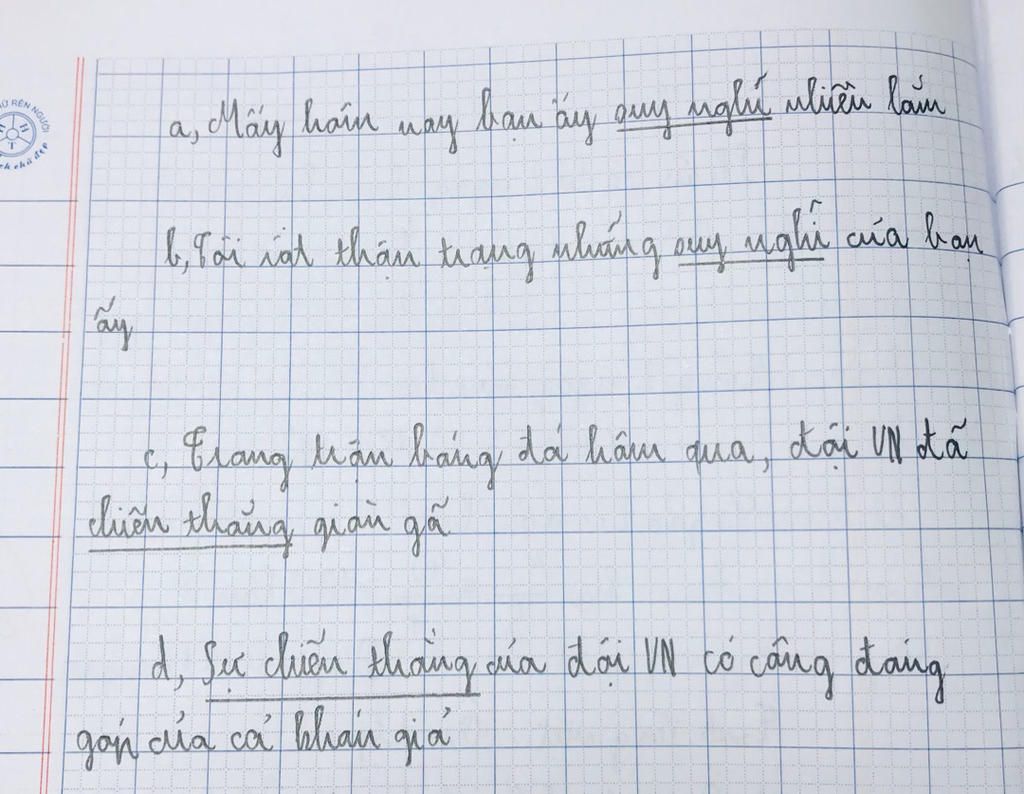 a, Mấy hôm nay bạn ấy suy nghĩ nhiều lắm
b, Tôi rất thận trọng những suy nghĩ của bạn
ấy
c, Trong trận bóng đá hôm qua, đội VN đã
chiến thắng giòn giã
d, Sự chiến thắng của đội VN có công đóng
góp của cả khán giả